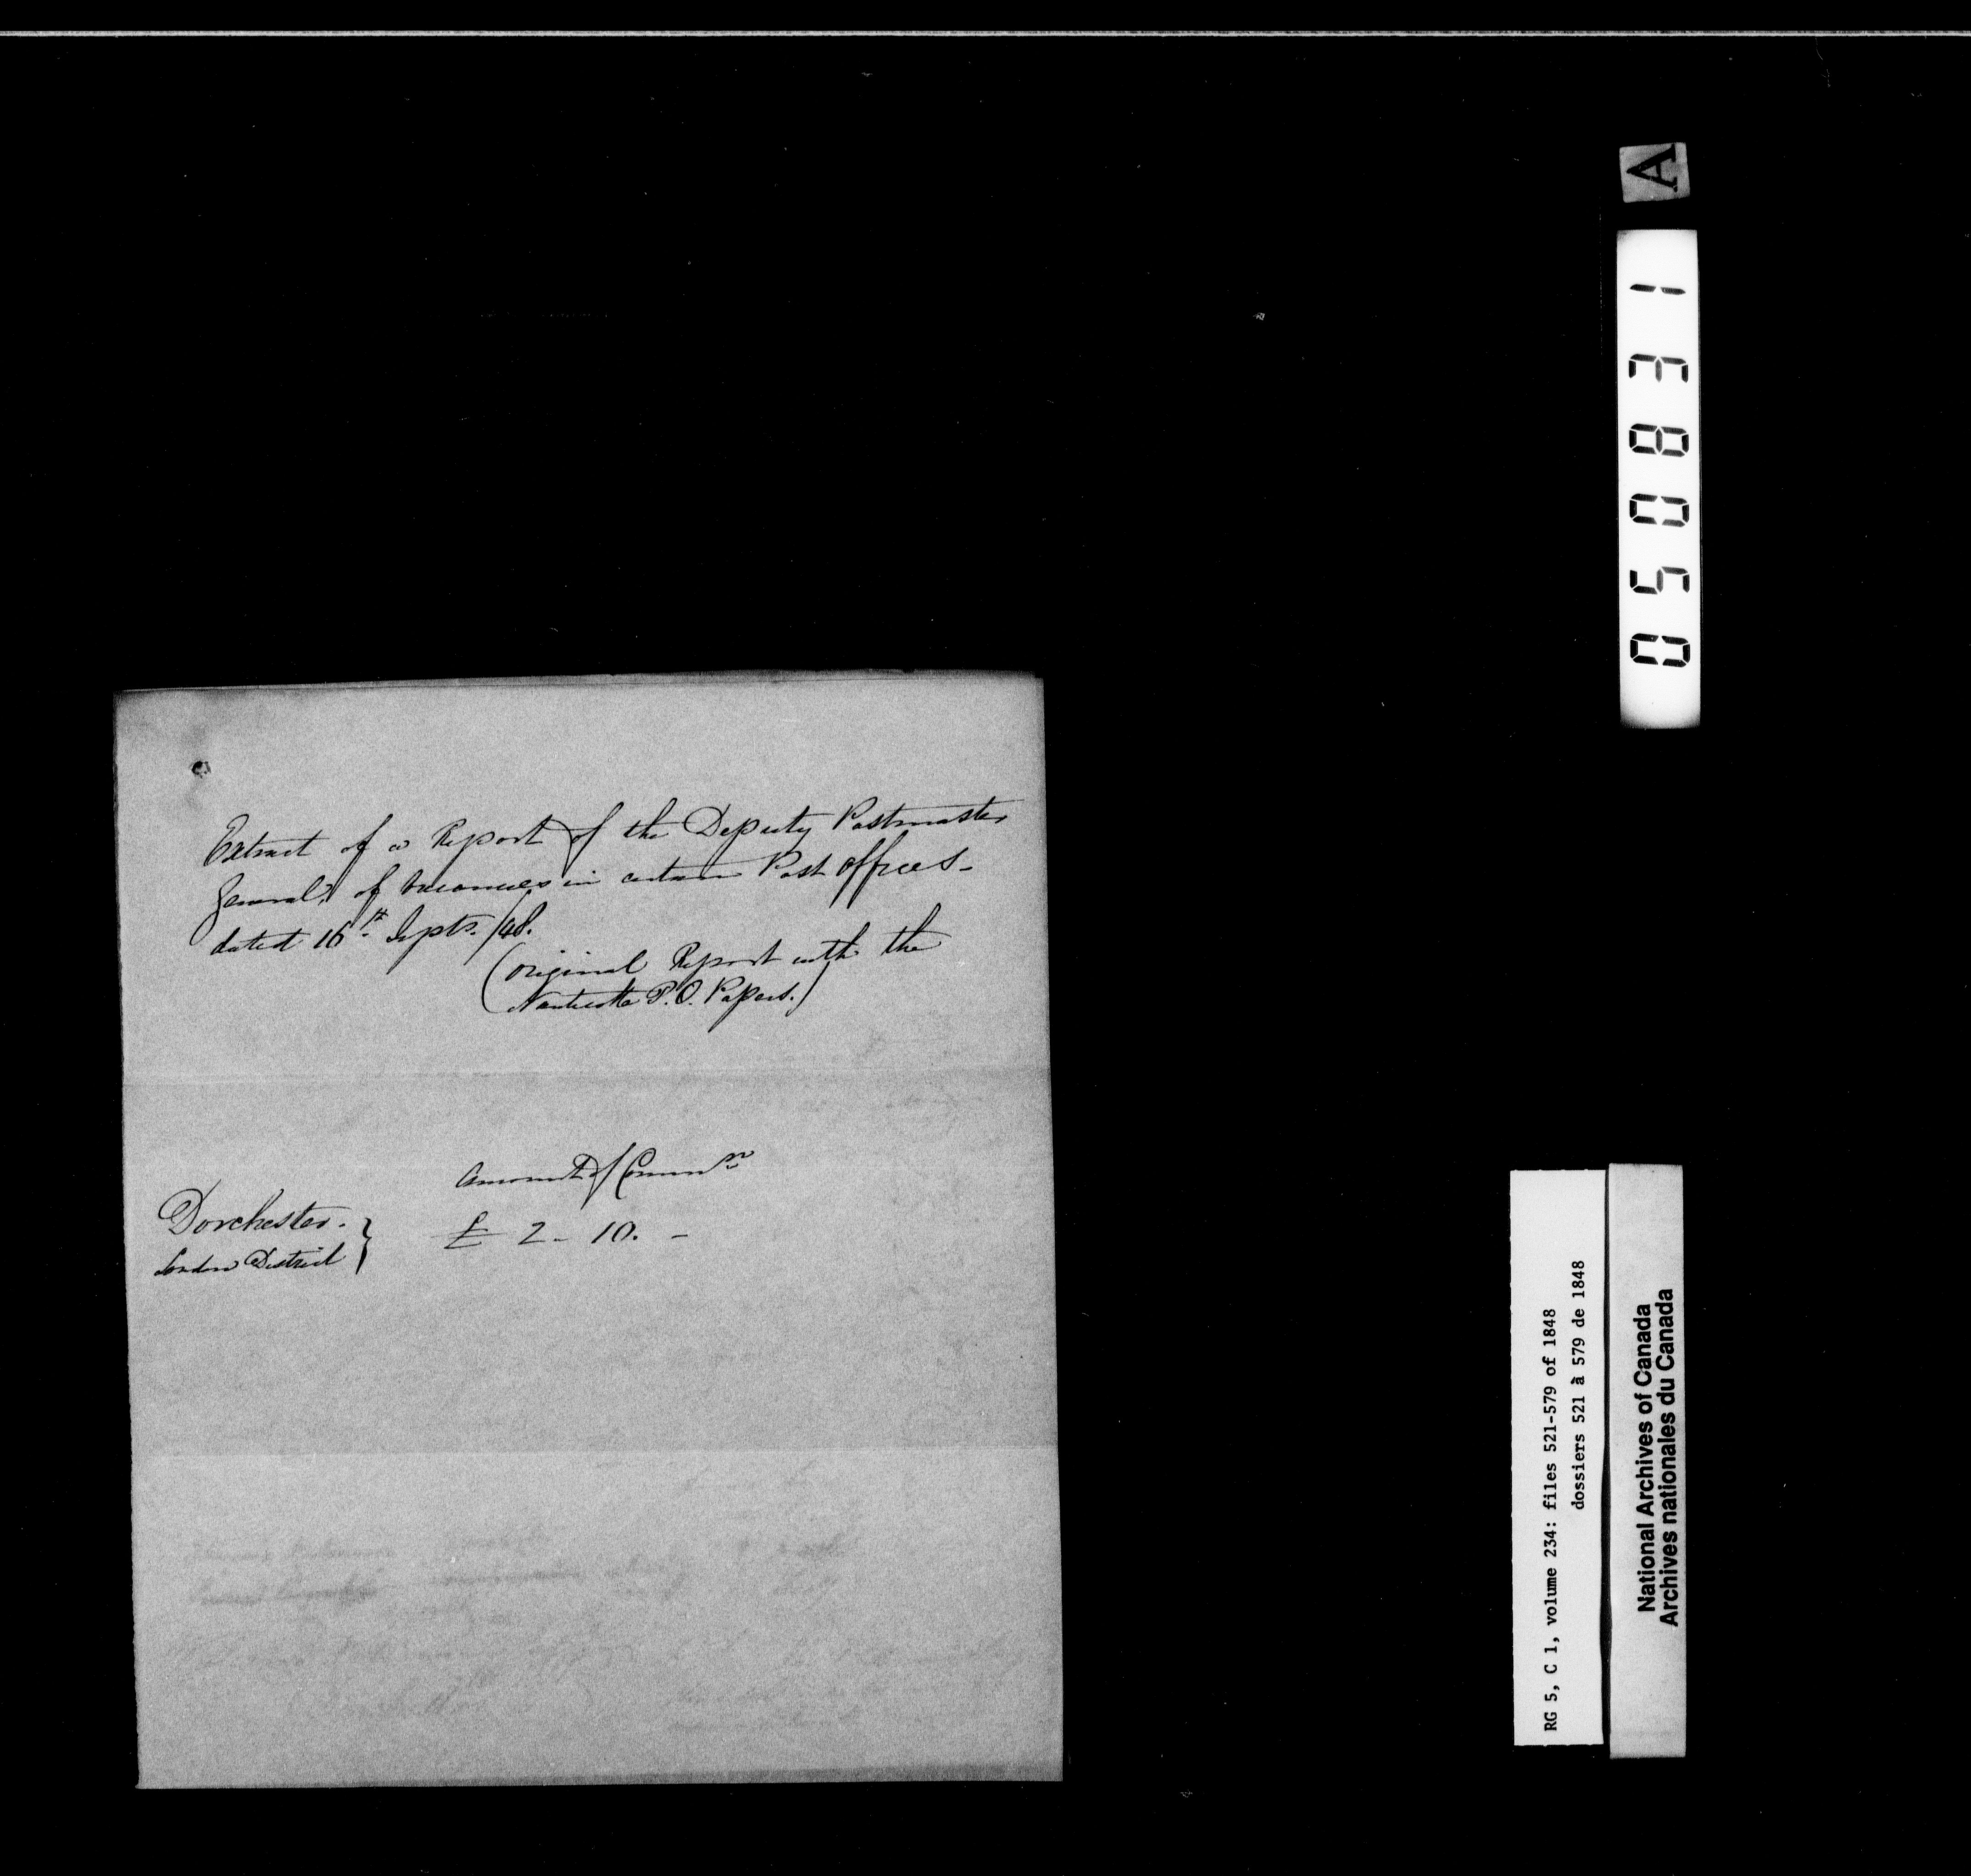 Extract of a Report of the Deputy Postmaster
General, of vacancies in certain Post offices -
dated 16th Septr. /48.
(original Report with the
Nanticoke P.O. Papers.)
Amount of Commn
Dorchester. } £ 2 - 10. -
London District
A
050831
RG 5, C 1, volume 234: files 521-579 of 1848
dossiers 521 à 579 de 1848
National Archives of Canada
Archives nationales du Canada